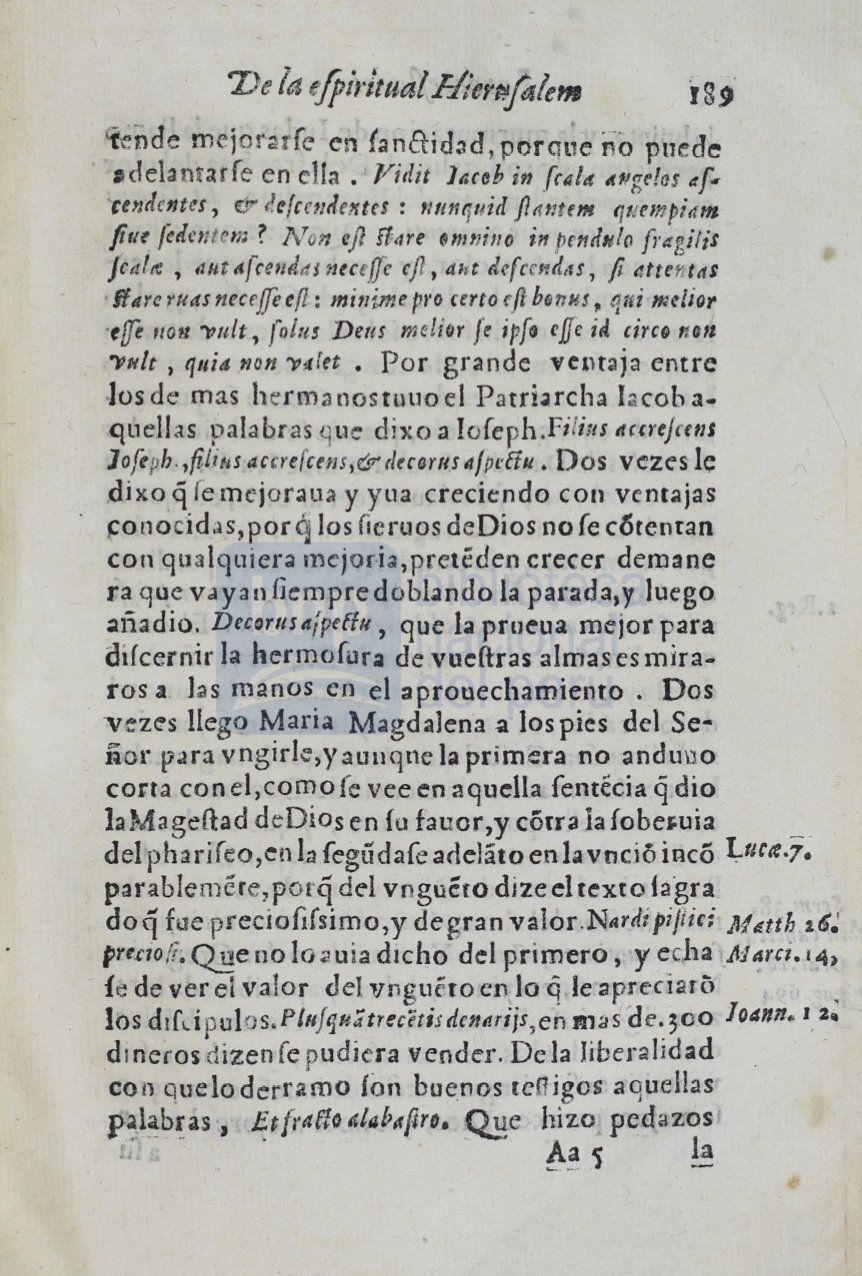 De la eſpiritual Hieruſalem 189
tende mejorarſe en ſanctidad, porque no puede
adelantarſe en ella . Vidit Iacob in ſcala angelos aſ-
cendentes, & deſcendentes : nunquid ſtantem quempiam
ſiue ſedentem ? Non eſt ſtare omnino in pendulo fragilis
ſcalæ , aut aſcendas neceſſe eſt, aut deſcendas, ſi attentas
ſtare ruas neceſſe eſt : minime pro certo eſt bonus, qui melior
eſſe non vult, ſolus Deus melior ſe ipſo eſſe id circo non
vult , quia non valet . Por grande ventaja entre
los de mas hermanos tuuo el Patriarcha Iacob a-
quellas palabras que dixo a Ioſeph. Filius accreſcens
Ioſeph., filius accreſcens, & decorus aſpectu . Dos vezes le
dixo q̃ ſe mejoraua y yua creciendo con ventajas
conocidas, porq̃ los ſieruos de Dios no ſe cõtentan
con qualquiera mejoria, pretẽden crecer demane
ra que vayan ſiempre doblando la parada, y luego
añadio. Decorus aſpectu , que la prueua mejor para
diſcernir la hermoſura de vueſtras almas es mira-
ros a las manos en el aprouechamiento . Dos
vezes llego Maria Magdalena a los pies del Se-
ñor para vngirle, y aunque la primera no anduuo
corta con el, como ſe vee en aquella ſentẽcia q̃ dio
la Mageſtad de Dios en ſu fauor, y cõtra la ſoberuia
del phariſeo, en la ſegũda ſe adelãto en la vnciõ incõ
parablemẽte, porq̃ del vnguẽto dize el texto ſagra
do q̃ fue precioſiſsimo, y de gran valor. Nardi piſtici
precioſi. Que no lo auia dicho del primero , y echa
ſe de ver el valor del vnguẽto en lo q̃ le apreciarõ
los diſcipulos. Pluſquã trecẽtis denarijs, en mas de .300
dineros dizen ſe pudiera vender. De la liberalidad
con que lo derramo ſon buenos teſtigos aquellas
palabras , Et fracto alabaſtro. Que hizo pedazos
Aa 5 la
Lucæ. 7.
Matth 26.
Marci. 14,
Ioann. 12.